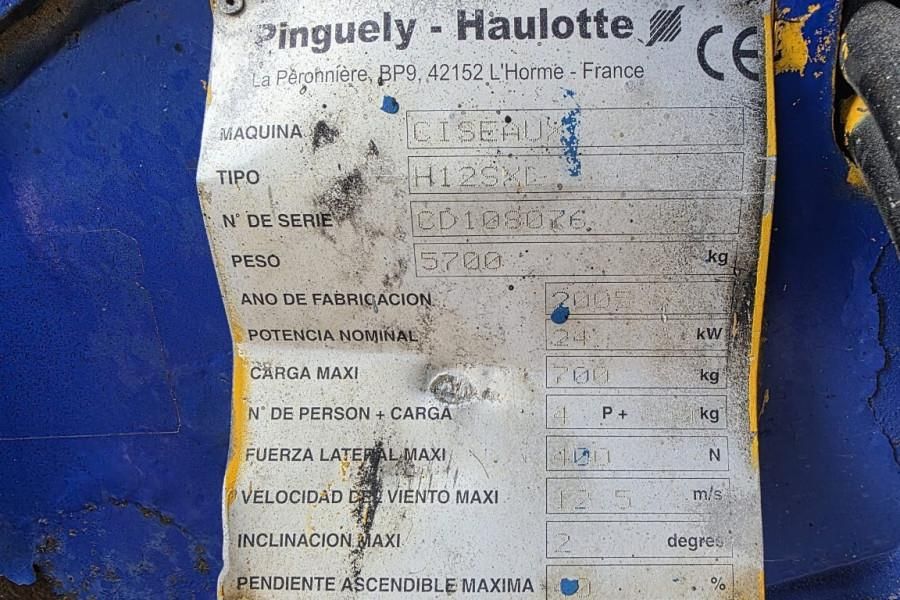 Pinguely - Haulotte
CE
La Péronnière, BP9, 42152 L'Horme - France
MAQUINA CISEAUX
TIPO H12SXD
N° DE SERIE CD108076
PESO 5700 kg
ANO DE FABRICACION 2005
POTENCIA NOMINAL 24 kW
CARGA MAXI 700 kg
N° DE PERSON + CARGA 4 P + kg
FUERZA LATERAL MAXI 400 N
VELOCIDAD DEL VIENTO MAXI 12.5 m/s
INCLINACION MAXI 2 degres
PENDIENTE ASCENDIBLE MAXIMA %